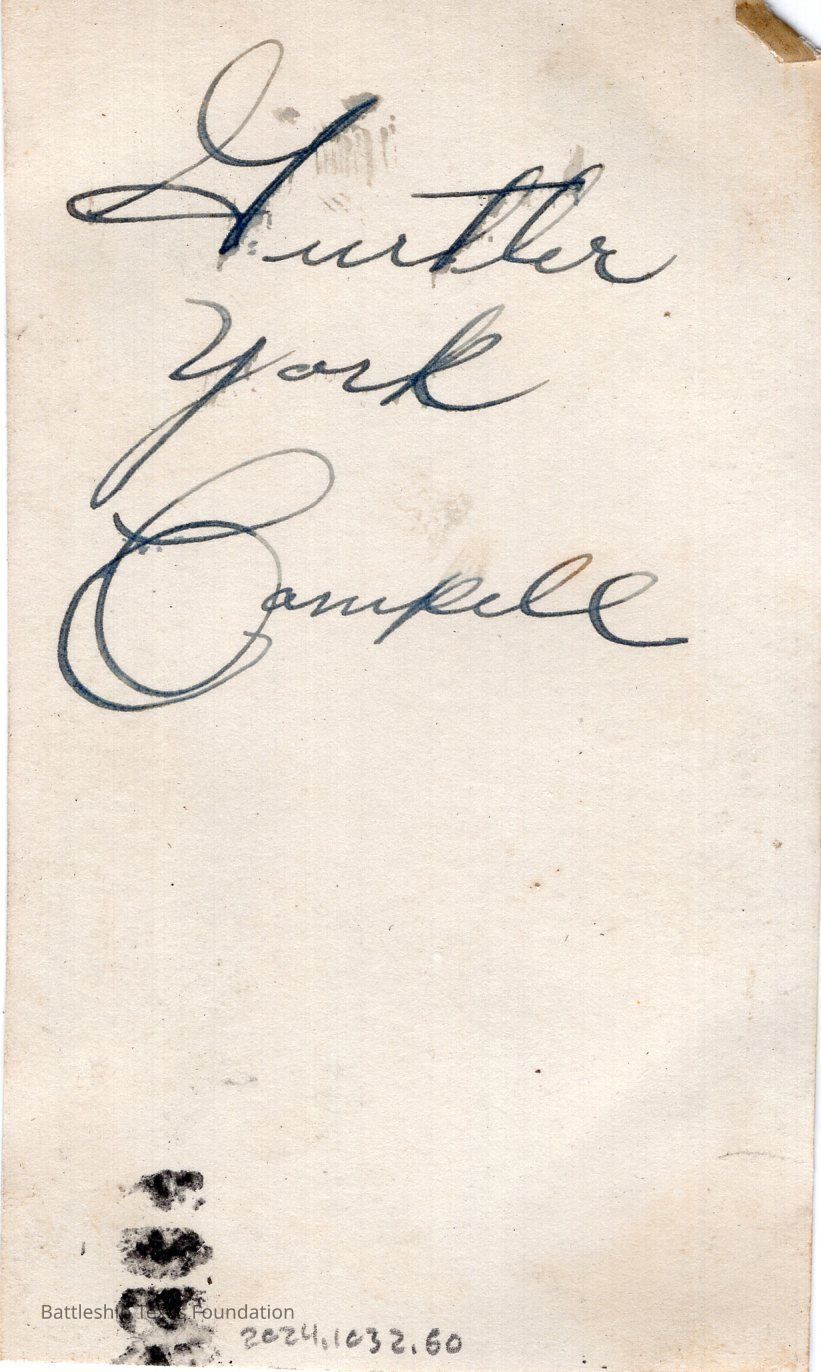 Gurtler
York
Campell
Battleship Texas Foundation
2024.1032.60